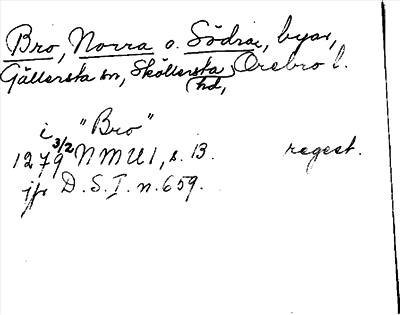 Bro, Norra o. Södra, byar,
Gällersta sn, Sköllersta hd, Örebro l.
i "Bro"
1279 3/2 NMU 1, s. 13. regest.
jfr D.S.I. n. 659.